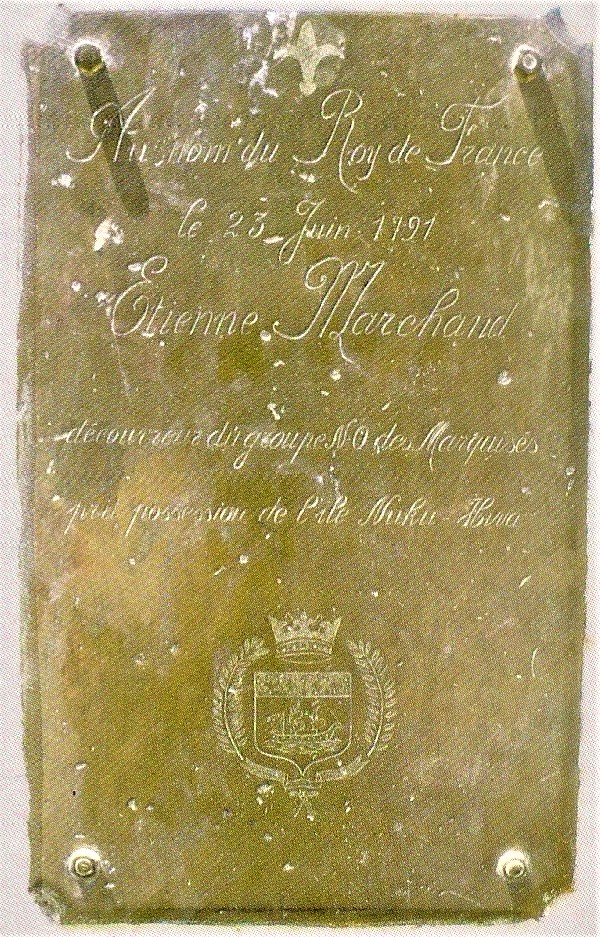 Au nom du Roy de France
le 23 Juin 1791
Etienne Marchand
découvreur du groupe NO des Marquises
prit possession de l'île Nuku-Hiva